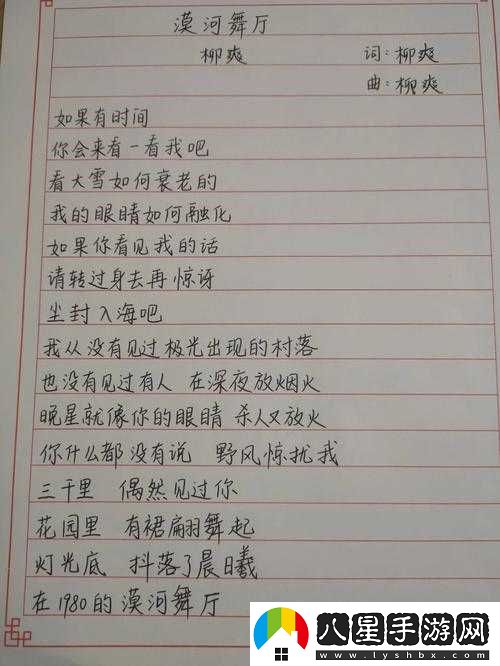 漠河舞厅
柳爽 词:柳爽
曲:柳爽
如果有时间
你会来看一看我吧
看大雪如何衰老的
我的眼睛如何融化
如果你看见我的话
请转过身去再惊讶
尘封入海吧
我从没有见过极光出现的村落
也没有见过有人 在深夜放烟火
晚星就像你的眼睛 杀人又放火
你什么都没有说 野风惊扰我
三千里 偶然见过你
花园里 有裙翩翩舞起
灯光底 抖落了晨曦
在1980的漠河舞厅
八星手游网
www.lyshbx.com